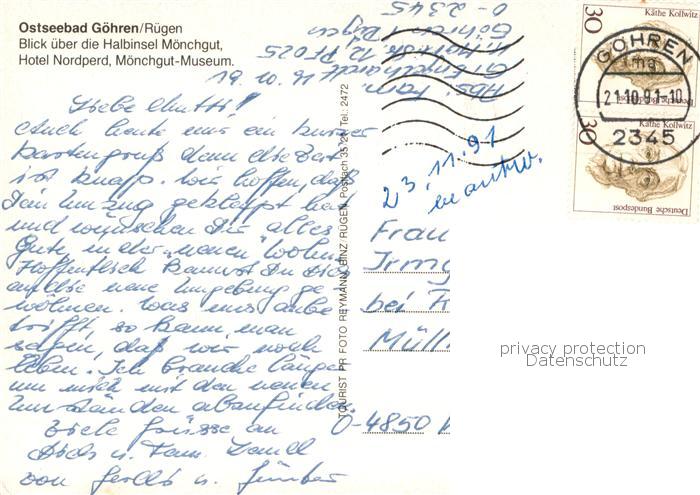 Ostseebad Göhren/Rügen
Blick über die Halbinsel Mönchgut,
Hotel Nordperd, Mönchgut-Museum.
19. 10. 91
Liebe Mutti!
Auch heute nur ein kurzer
Kartengruß denn die Zeit
ist knapp. Wir hoffen, daß
Dein Umzug geklappt hat
und wünschen Dir alles
Gute in der "neuen" Wohn.
Hoffentlich kannst Du Dich
an die neue Umgebung ge-
wöhnen. Was uns anbe
trifft, so kann man
sagen, daß wir noch
leben. Ich brauche länger
um mich mit den neuen
Umständen abzufinden.
Viele Grüsse an
Dich u. Fam.
von Gerdi u. Günter
Abs. Fam.
12 PF 025
Göhren / Rügen
O - 2345
TOURIST PR FOTO REYMANN BINZ/RÜGEN Postfach 35 21 Tel.: 2472
23.11.91
beantw.
Frau
Irm
bei F
Müll
O-4850
30
Käthe Kollwitz
Deutsche Bundespost
30
Käthe Kollwitz
Deutsche Bundespost
GÖHREN
ma
21.10.91-10
2345
privacy protection
Datenschutz